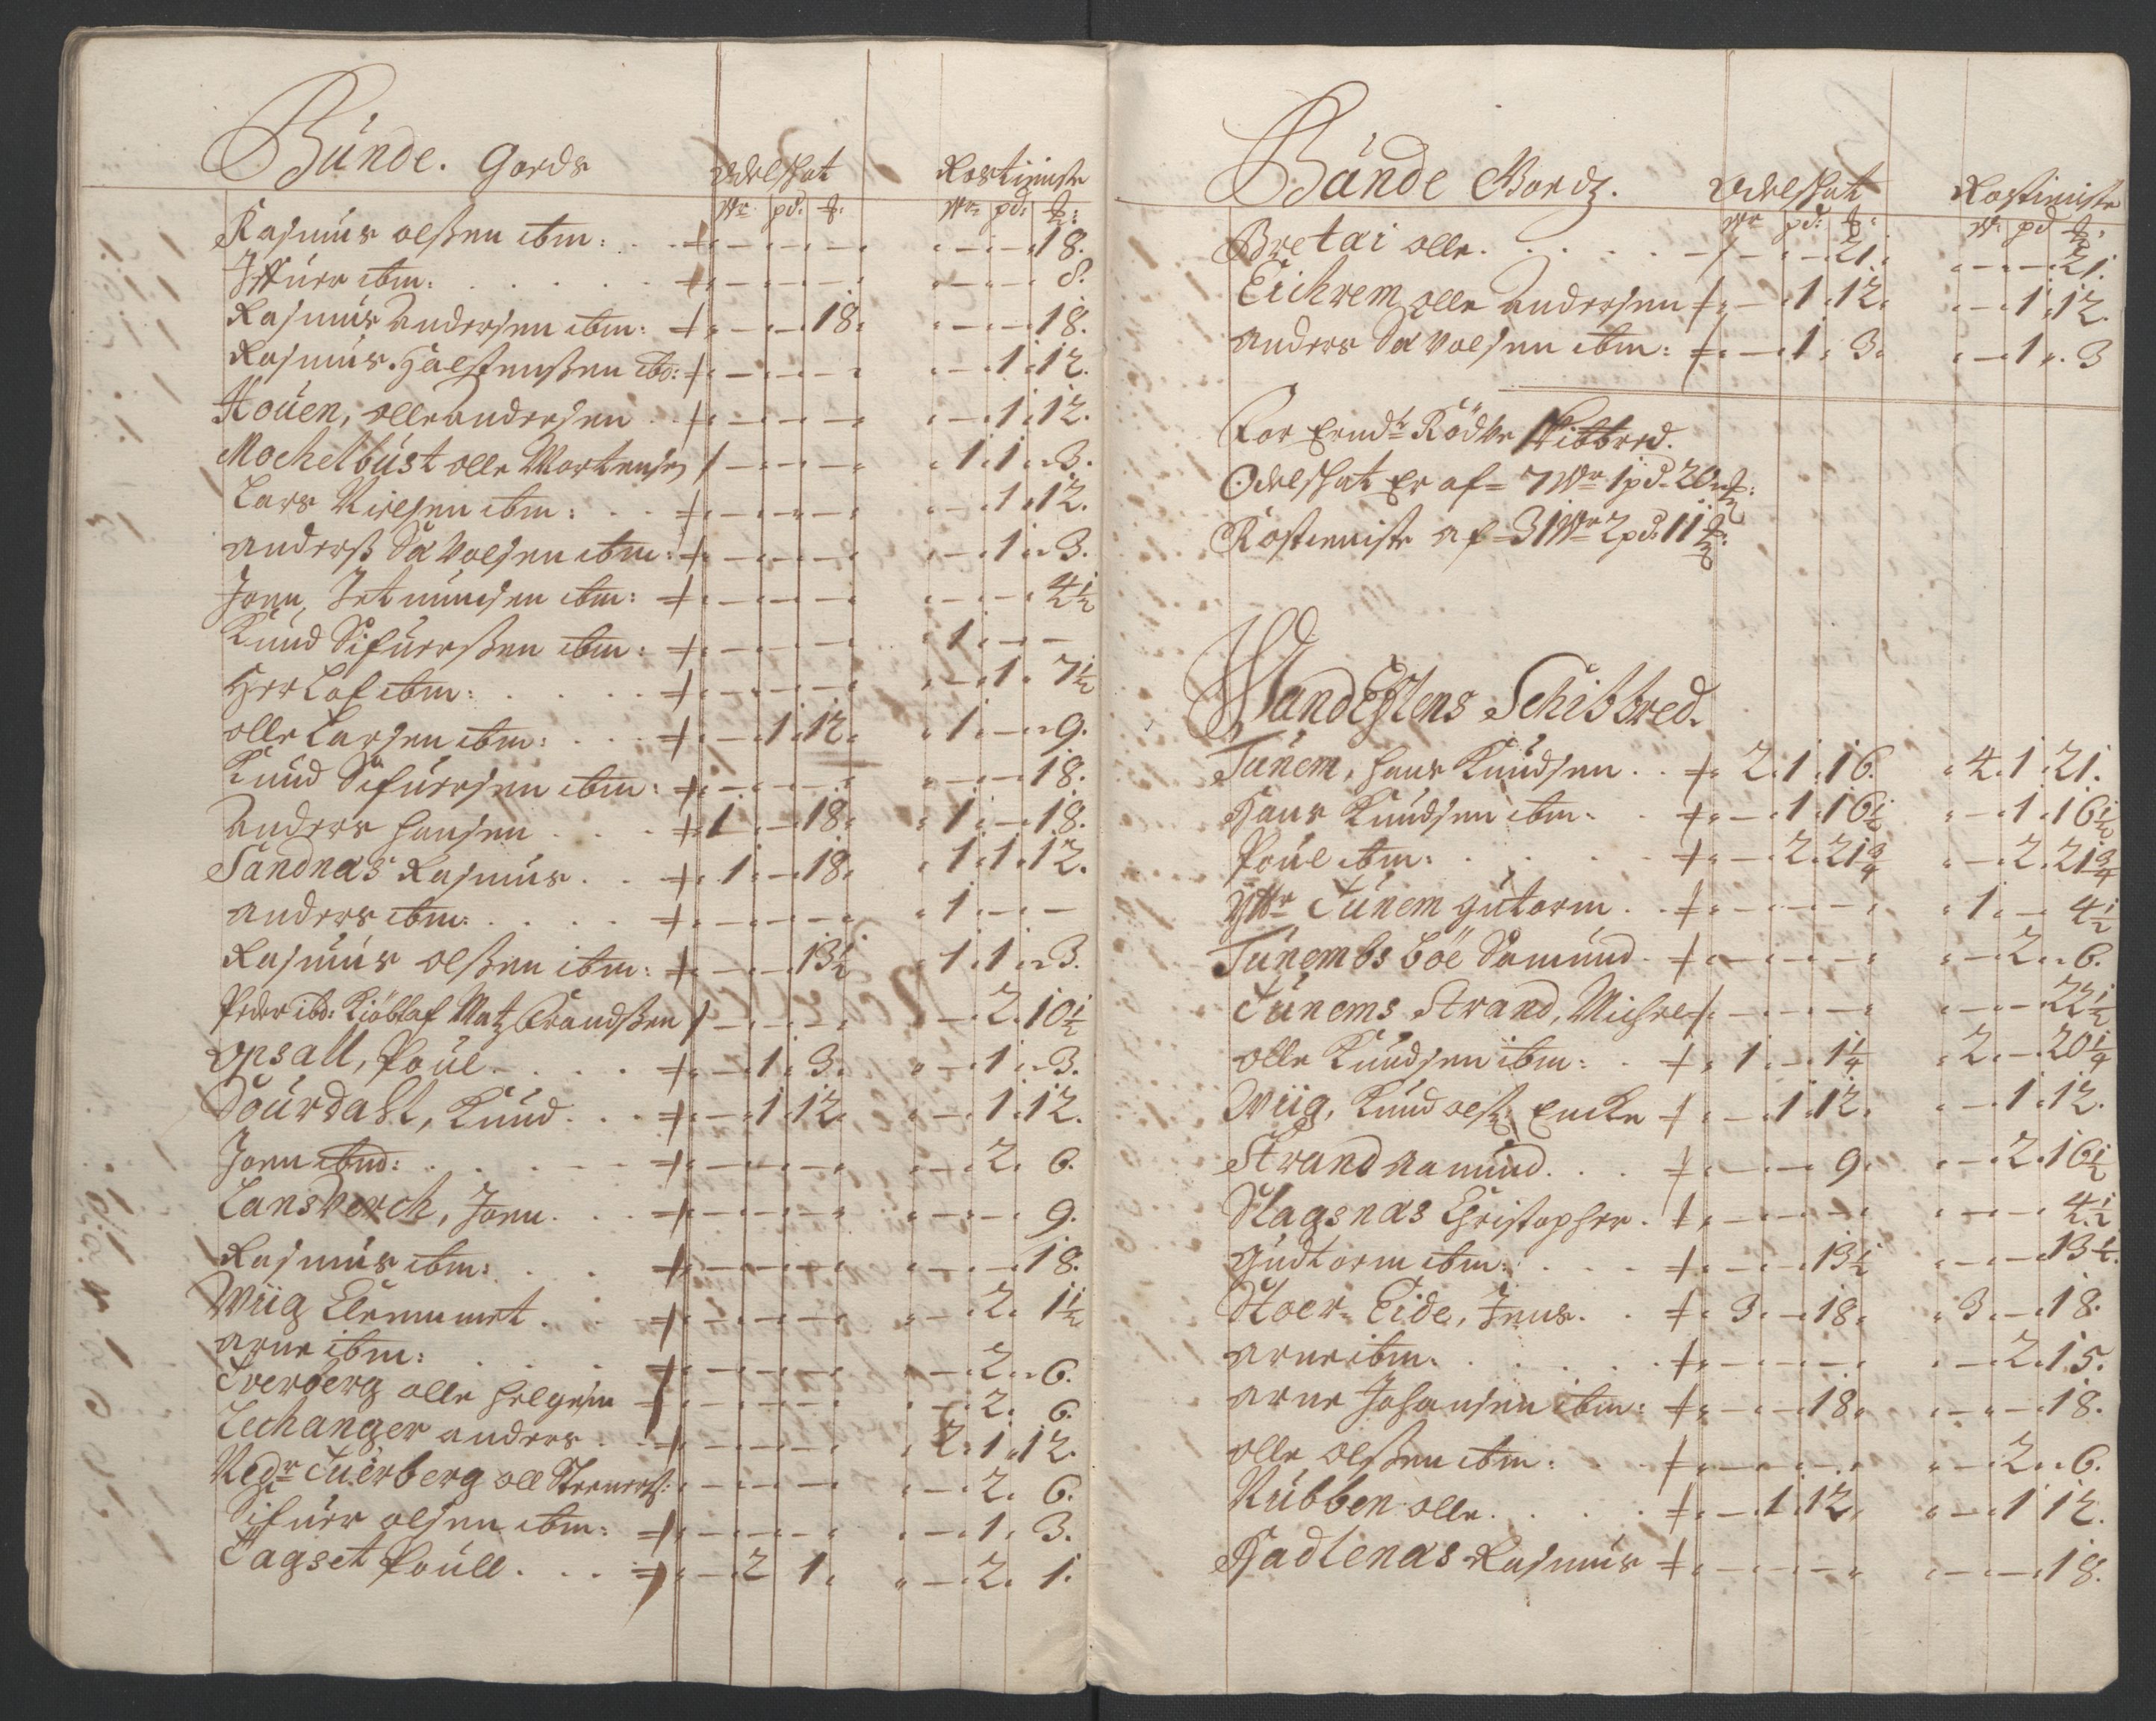 Bünde. Gords Odelskat Rostieniste
Wr pd: ℔: Wr pd: ℔:
Rasmus olßen ibm: 18.
Iffuer ibm: 8.
Rasmus Andersen ibm: 18. 18.
Rasmus Halstensßen ibd: 1. 12.
Houen, olle andersen 1. 12.
Mochelbust olle Mortensen 1. 1. 3.
Lars Nielsen ibm: 1. 12.
anderß Saxvelsen ibm: 1. 3.
Jonn Jetmundsen ibm: 4½
Knud Sifuerßen ibm: 1.
Herlof ibm: 1. 7½
olle Larsen ibm: 1. 12. 1. 9.
Knud Sifuersen ibm: 18.
Anders hansen 1. 18. 1. 18.
Sandnæs Rasmus 1. 18. 1. 1. 12.
anders ibm: 1.
Rasmus olßen ibm: 13½ 1. 1. 3.
Peder ibd: Kiöbt af Matz Trondßen 2. 10½
Opsall, Poul 1. 3. 1. 3.
Sourdall, Knud 1. 12. 1. 12.
Jonn ibmd: 2. 6.
Lansverch, Jonn 9.
Rasmus ibm: 18.
Wiig Clemmet 2. 1½
Arne ibm: 2. 6.
Tverberg olle helgesen 2. 6.
Lechanger anders 2. 1. 12.
Nedr Tuerberg oll Steners: 2. 6.
Sifuer olsen ibm: 1. 3.
Tagset Poull 2 1. 2. 1.
Bünde Gordz. Odelskat Rostieniste
Wr pd: ℔: Wr pd ℔:
Bretai olle 21. 21.
Eichrem olle andersen 1. 12. 1. 12.
anders Saxvelsen ibm: 1. 3. 1. 3
For Rödve Skibbred.
Odelskat Er af 7 Wr 1 pd 20 ℔:
Rostieniste af 31 Wr 2 pd: 11 ℔:
Wandelstens Schibbred.
Tunem, hans Knudsen 2. 1. 16. 4. 1. 21.
Hans Knudsen ibm: 1. 16½ 1. 16½
Poul ibm: 2. 21¾ 2. 21¾
Ytr Tunem gutorm 1. 4½
Tunembs böe Samund 2. 6.
Tunems Strand, Michel 22½
olle Knudsen ibm: 1. 1¼ 2. 20¼
Wiig, Knud olß: Encke 1. 12. 1. 12.
Strand Aamund 9. 2. 16½
Slagsnæs Christopher 4½
gudtorm ibm: 13½ 13½.
Stoer Eide, Jens 3. 18. 3. 18.
Arne ibm: 2. 15.
Arne Johansen ibm: 18. 18.
olle olßen ibm: 2. 6.
Nubben olle 1. 12. 1 12.
Hadlenæs Rasmus 18.